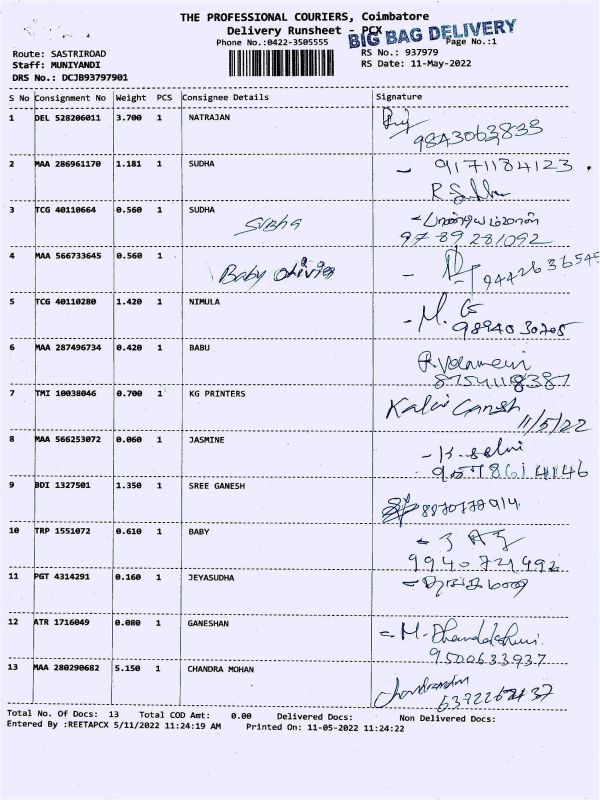 THE PROFESSIONAL COURIERS, Coimbatore
Delivery Runsheet - PCX
BIG BAG DELIVERY
Phone No.:0422-3505555 Page No.:1
Route: SASTRIROAD RS No.: 937979
Staff: MUNIYANDI RS Date: 11-May-2022
DRS No.: DCJB93797901
S No Consignment No Weight PCS Consignee Details Signature
1 DEL 528206011 3.700 1 NATRAJAN
9843063833
2 MAA 286961170 1.181 1 SUDHA - 9171184123
3 TCG 40110664 0.560 1 SUDHA
Subha
9789281092
4 MAA 566733645 0.560 1
Baby Olivia
5 TCG 40110280 1.420 1 NIMULA - M. G
6 MAA 287496734 0.420 1 BABU
7 TMI 10038046 0.700 1 KG PRINTERS Kalai Ganesh
11/5/22
8 MAA 566253072 0.060 1 JASMINE - K. Selvi
9578614146
9 BDI 1327501 1.350 1 SREE GANESH
10 TRP 1551072 0.610 1 BABY
9940721492
11 PGT 4314291 0.160 1 JEYASUDHA
12 ATR 1716049 0.080 1 GANESHAN
9500633937
13 MAA 280290682 5.150 1 CHANDRA MOHAN
Total No. Of Docs: 13 Total COD Amt: 0.00 Delivered Docs: Non Delivered Docs:
Entered By :REETAPCX 5/11/2022 11:24:19 AM Printed On: 11-05-2022 11:24:22